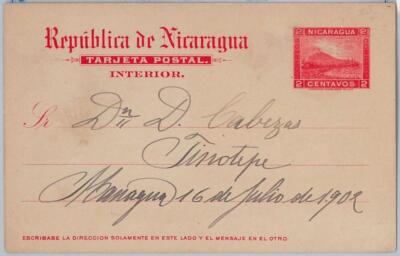 República de Nicaragua
TARJETA POSTAL.
INTERIOR.
2 NICARAGUA 2
2 CENTAVOS 2
Sr Dn D. Cabezas
Jinotepe
Managua 16 de Julio de 1902
ESCRIBASE LA DIRECCION SOLAMENTE EN ESTE LADO Y EL MENSAJE EN EL OTRO.